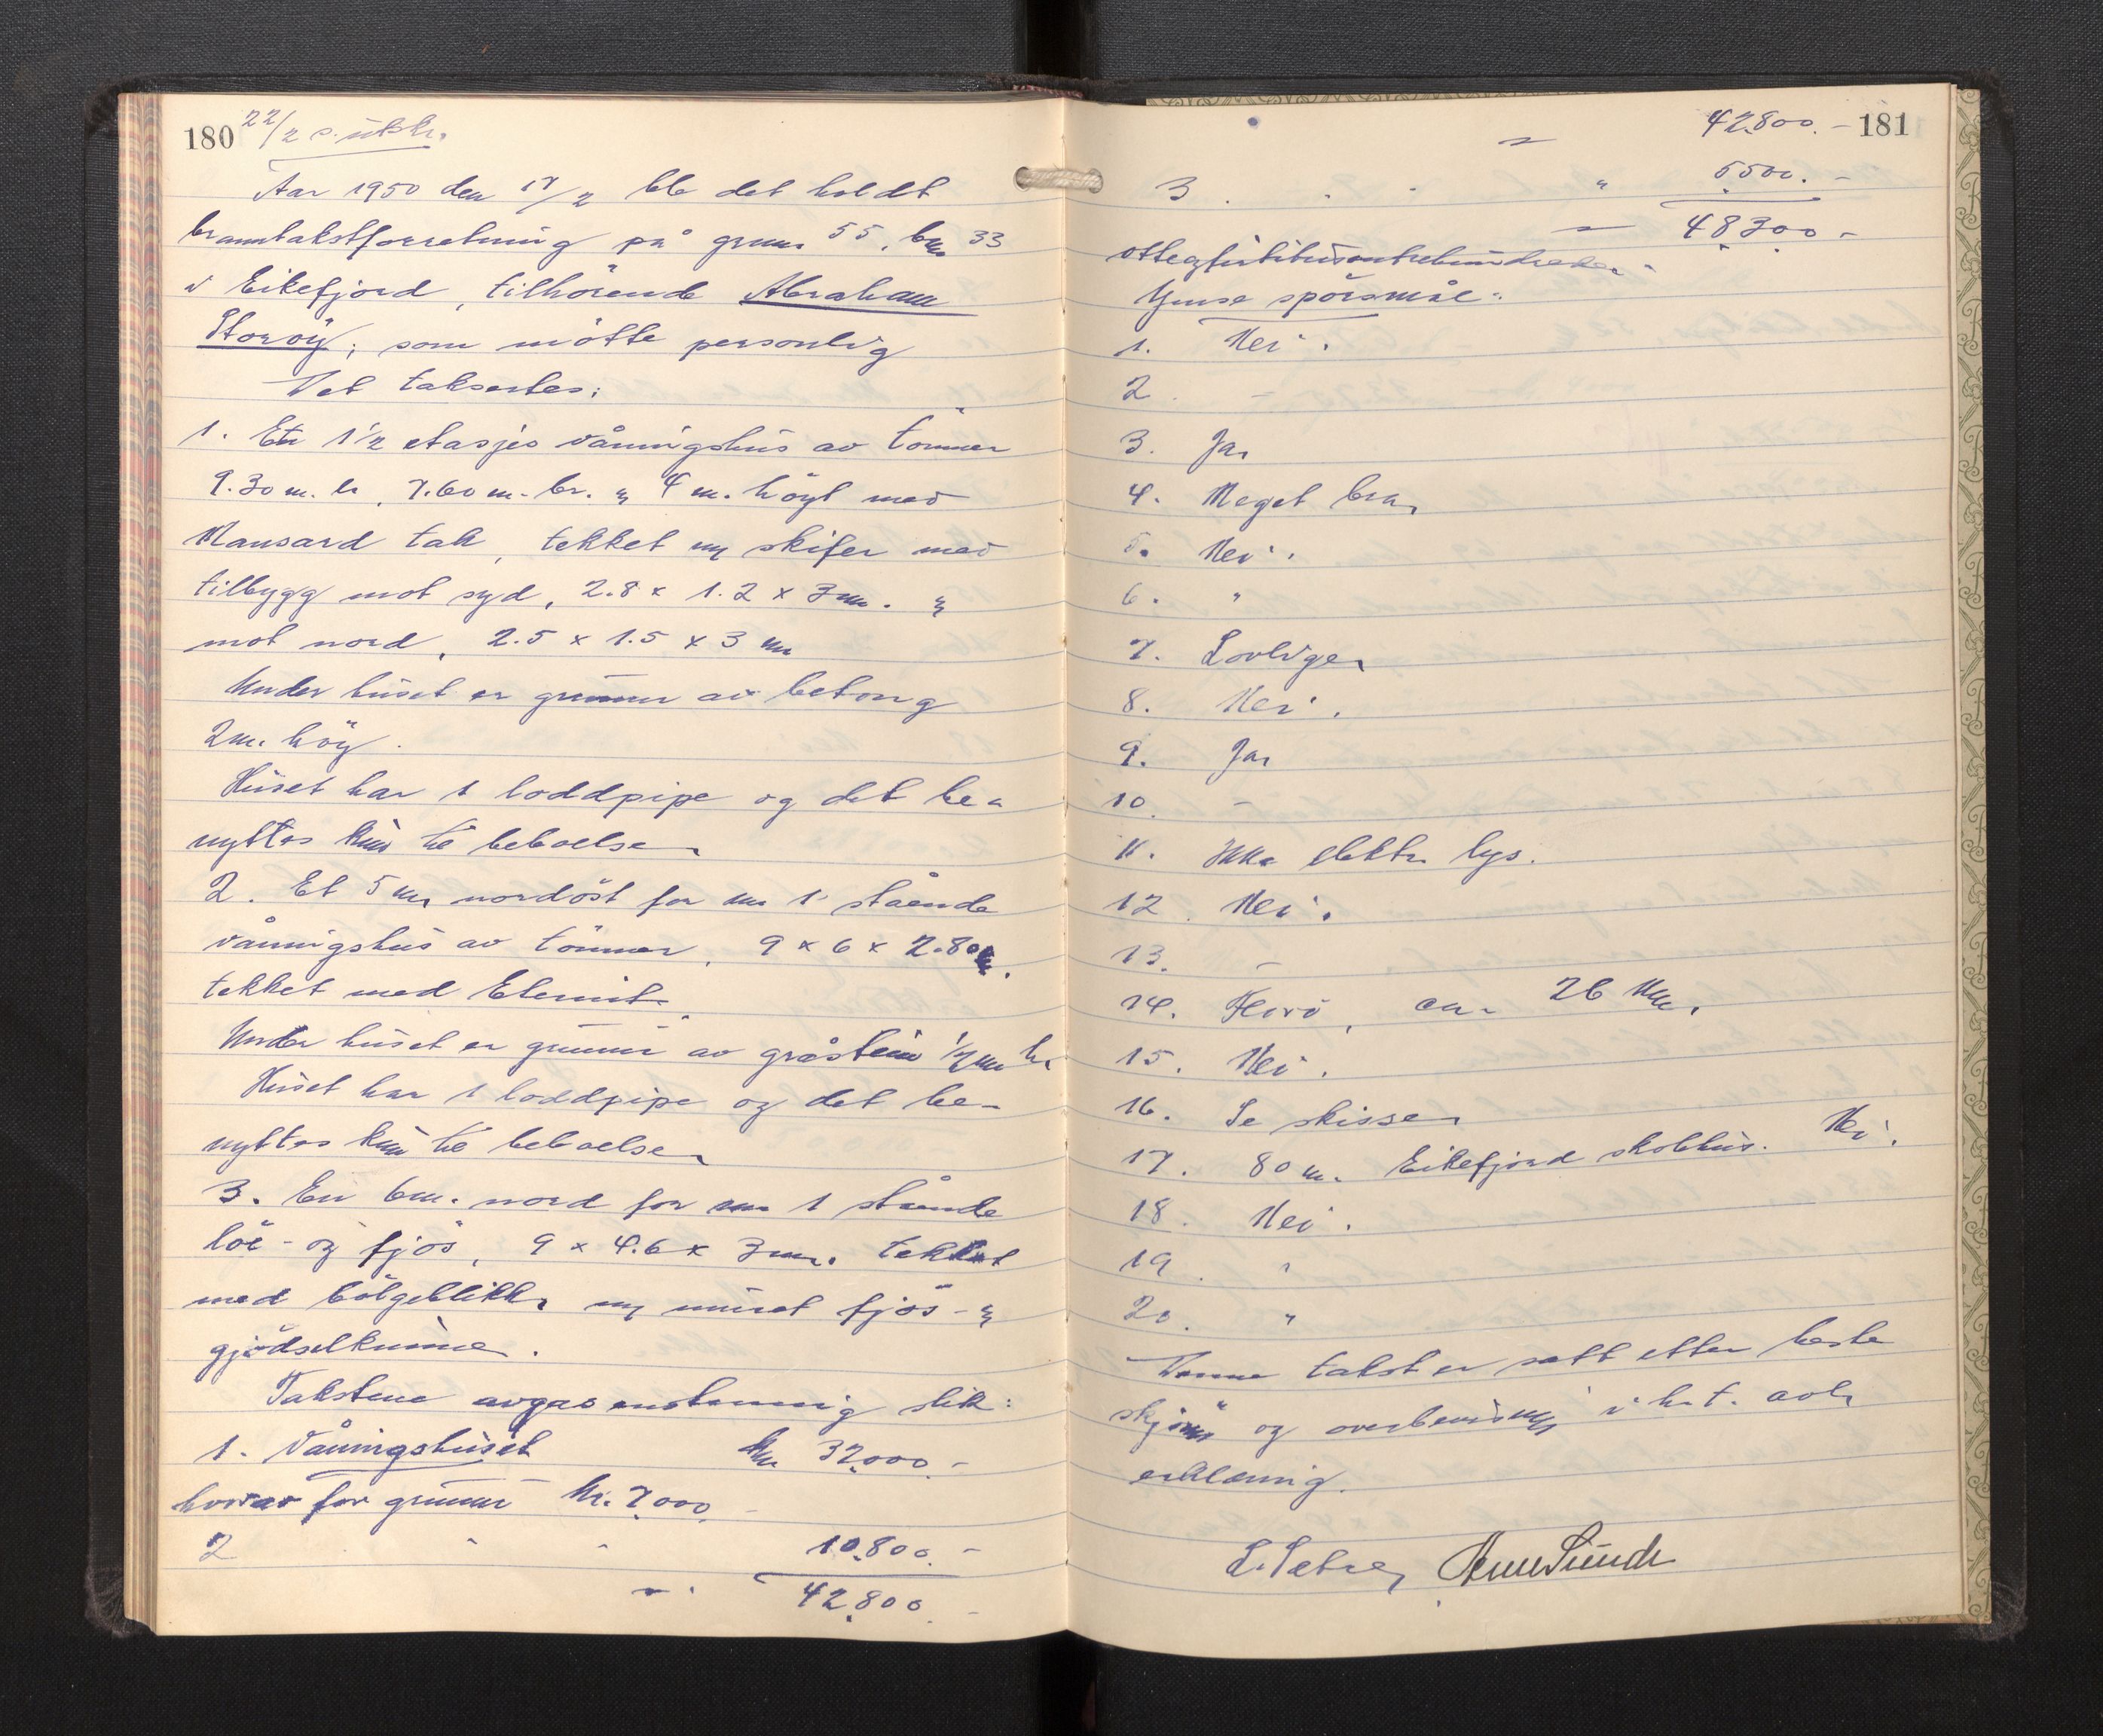 180 22/2 s. utskr.
Aar 1950 den 17/2 ble det holdt
branntakstforretning på grnr 55, bnr 33
i Eikefjord, tilhörende Abraham
Storöy, som mötte personlig
Det taksertes:
1. Et 1 1/2 etasjes våningshus av tömmer
9.30 m. l., 7.60 m. br. og 4 m. höyt med
Mansard tak, tekket m/ skifer med
tilbygg mot syd, 2.8 x 1.2 x 3 m. og
mot nord, 2.5 x 1.5 x 3 m
Under huset er grunnmur av betong
2 m. höy.
Huset har 1 loddpipe og det be-
nyttes kun til beboelse.
2. Et 5 m. nordöst for nr 1 stående
våningshus av tömmer, 9 x 6 x 2.80 m.
tekket med Eternit.
Under huset er grunnmur av gråstein 1/2 m h.
Huset har 1 loddpipe og det be-
nyttes kun til beboelse.
3. En 6 m. nord for nr 1 stående
löe- og fjös, 9 x 4.6 x 3 m. tekket
med bölgeblikk, m/ muret fjös- og
gjödselkum.
Takstene avgas enstemmig slik:
1. Våningshuset kr 32.000.-
herav for grunnmur kr. 7.000.-
2 " " 10.800.-
42.800.-
42.800.- 181
3. " " " 5500.-
48300.-
Ymse spörsmål:
1. Nei.
2. -
3. Ja.
4. Meget bra.
5. Nei.
6. "
7. Lovlige.
8. Nei.
9. Ja.
10. -
11. Ikke elektr. lys.
12. Nei.
13. -
14. Florö, ca. 26 km.
15. Nei.
16. Se skisse.
17. 80 m. Eikefjord skolehus. Nei.
18. Nei.
19. "
20. "
Denne takst er satt etter beste
skjönn og overbevisning i h.t. avl.
erklæring.